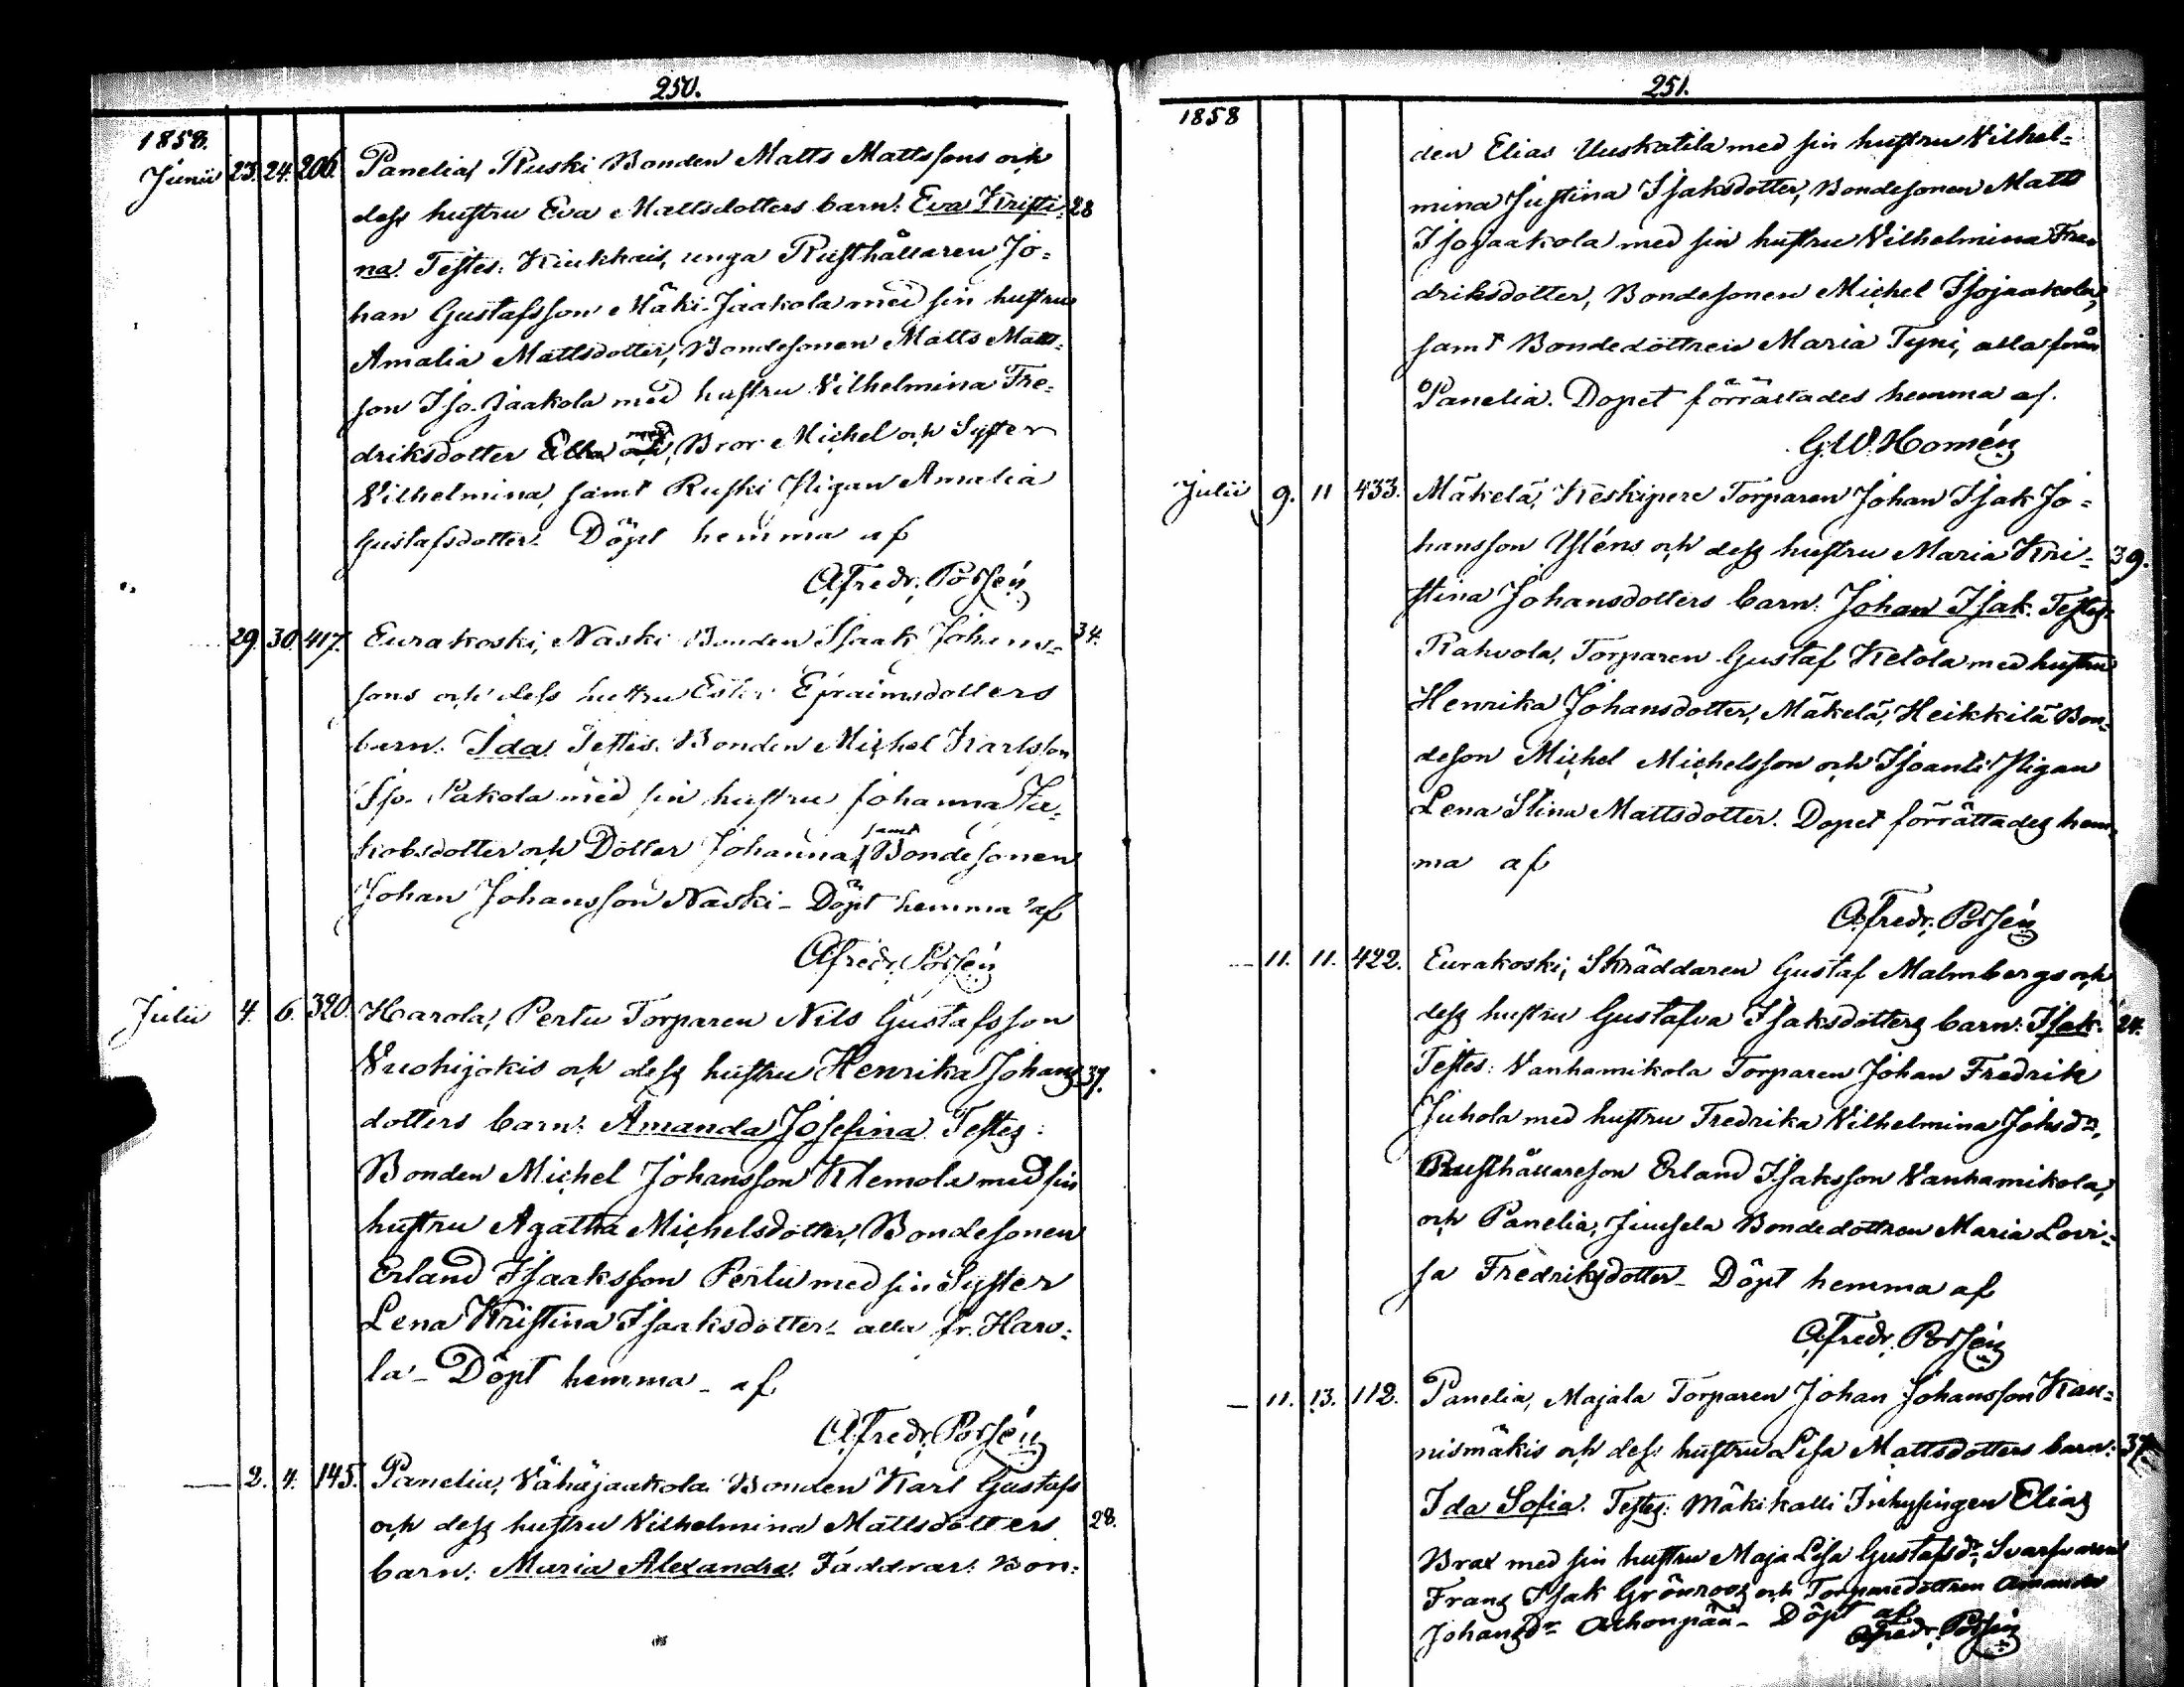 250.
1858.
Junii 23. 24. 206. Panelia, Ruski Bonden Matts Mattssons och
dess hustru Eva Mattsdotters barn: Eva Kristi- 28
na. Testes: Kiukkais, unga Rusthållaren Jo-
han Gustafsson Mäki-Jaakola med sin hustru
Amalia Mattsdotter, Bondesonen Matts Matts-
son Iso-Jaakola med hustru Vilhelmina Fre-
driksdotter med Bror Michel och Syster
Vilhelmina, samt Ruski Pigan Amalia
Gustafsdotter. Döpt hemma af
A. Fredr. Porsén
29. 30. 417. Eurakoski, Naski Bonden Isaak Johans- 34.
sons och dess hustru Ester Efraimsdotters
barn: Ida. Testes: Bonden Michel Karlsson
Iso-Pakola med sin hustru Johanna Ja-
kobsdotter och Dotter Johanna, samt Bondesonen
Johan Johansson Naski - Döpt hemma af
A. Fredr. Porsén
Julii 4. 6. 390. Harola, Pertu Torparen Nils Gustafsson
Vuohijokis och dess hustru Henrika Johans 37.
dotters barn: Amanda Josefina. Testes:
Bonden Michel Johansson Klemola med sin
hustru Agatha Michelsdotter, Bondesonen
Erland Isaaksson Pertu med sin Syster
Lena Kristina Isaaksdotter - alla fr. Haro-
la - Döpt hemma - af
A. Fredr. Porsén
— 2. 4. 145. Panelia, Vähäjaakola Bonden Karl Gustafs
och dess hustru Vilhelmina Mattsdotters 28.
barn: Maria Alexandra. Faddrar: Bon-
251.
1858
den Elias Uuskatila med sin hustru Vilhel-
mina Justina Isaksdotter, Bondesonen Matts
Isojaakola med sin hustru Vilhelmina Fre-
driksdotter, Bondesonen Michel Isojaakola,
samt Bondedottren Maria Tyni, alla från
Panelia. Dopet förrättades hemma af.
G. W. Homén
Julii 9. 11 433. Mäkelä, Keskipere Torparen Johan Isak Jo-
hansson Yléns och dess hustru Maria Kri- 39.
stina Johansdotters barn: Johan Isak. Testes:
Rahvola, Torparen Gustaf Ketola med hustru
Henrika Johansdotter, Mäkelä, Heikkilä Bon-
deson Michel Michelsson och Isoantti Pigan
Lena Stina Mattsdotter. Dopet förrättades hem-
ma af
A. Fredr. Porsén
— 11. 11. 422. Eurakoski, Skräddaren Gustaf Malmbergs och
dess hustru Gustafva Isaksdotters barn: Isak. 24.
Testes: Vanhamikola Torparen Johan Fredrik
Juhola med hustru Fredrika Vilhelmina Johsdr,
Rusthållareson Erland Isaksson Vanhamikola,
och Panelia, Juusela Bondedottren Maria Lovi-
sa Fredriksdotter - Döpt hemma af
A. Fredr. Porsén
— 11. 13. 112. Panelia, Majala Torparen Johan Johansson Kau-
nismäkis och dess hustru Lisa Mattsdotters barn: 37.
Ida Sofia. Testes: Mäkikalli Inhysingen Elias
Brax med sin hustru Maja Lisa Gustafsdr, Svarfvaren
Frans Isak Grönroos och Torparedottren Amanda
Johansdr Ahonpää - Döpt af
A. Fredr. Porsén